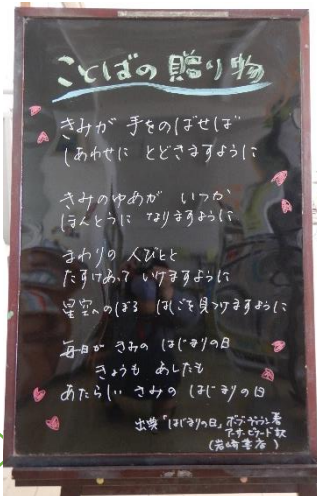 ことばの贈り物
きみが 手をのばせば
しあわせに とどきますように
きみのゆめが いつか
ほんとうに なりますように
まわりの 人びとと
たすけあって いけますように
星空へのぼる はしごを見つけますように
毎日が きみの はじまりの日
きょうも あしたも
あたらしい きみの はじまりの日
出典「はじまりの日」ボブ・ディラン著
アーサー・ビナード訳
(岩崎書店)